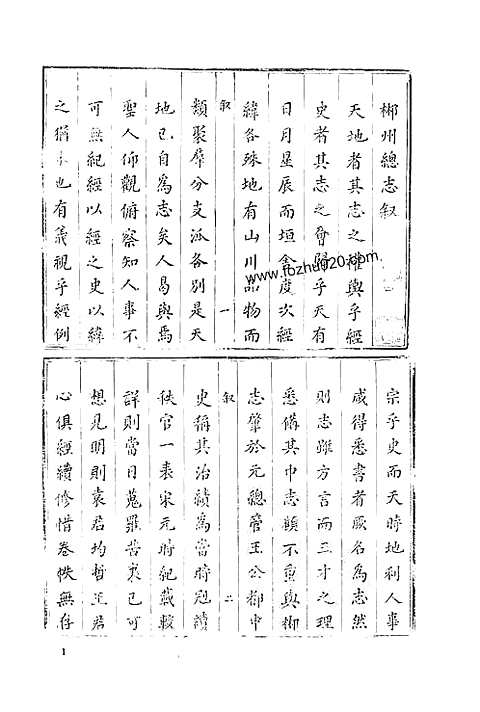 郴州總志叙
天地者其志之權輿乎經
史者其志之會歸乎天有
日月星辰而垣舍度次經
緯各殊地有山川品物而
叙
一
類聚羣分支派各別是天
地已自為志矣人曷與焉
聖人仰觀俯察知人事不
可無紀經以經之史以緯
之猶未也有義視乎經例
宗乎史而天時地利人事
咸得悉書者厥名為志然
則志雖方言而三才之理
悉備其中志顧不重與郴
志肇於元總管王公都中
叙
二
史稱其治績為當時冠讀
秩官一表宋元時紀載較
詳則當日蒐羅苦衷已可
想見明則袁君均哲王君
心俱經續修惜卷帙無存
www.fozhu920.com
1